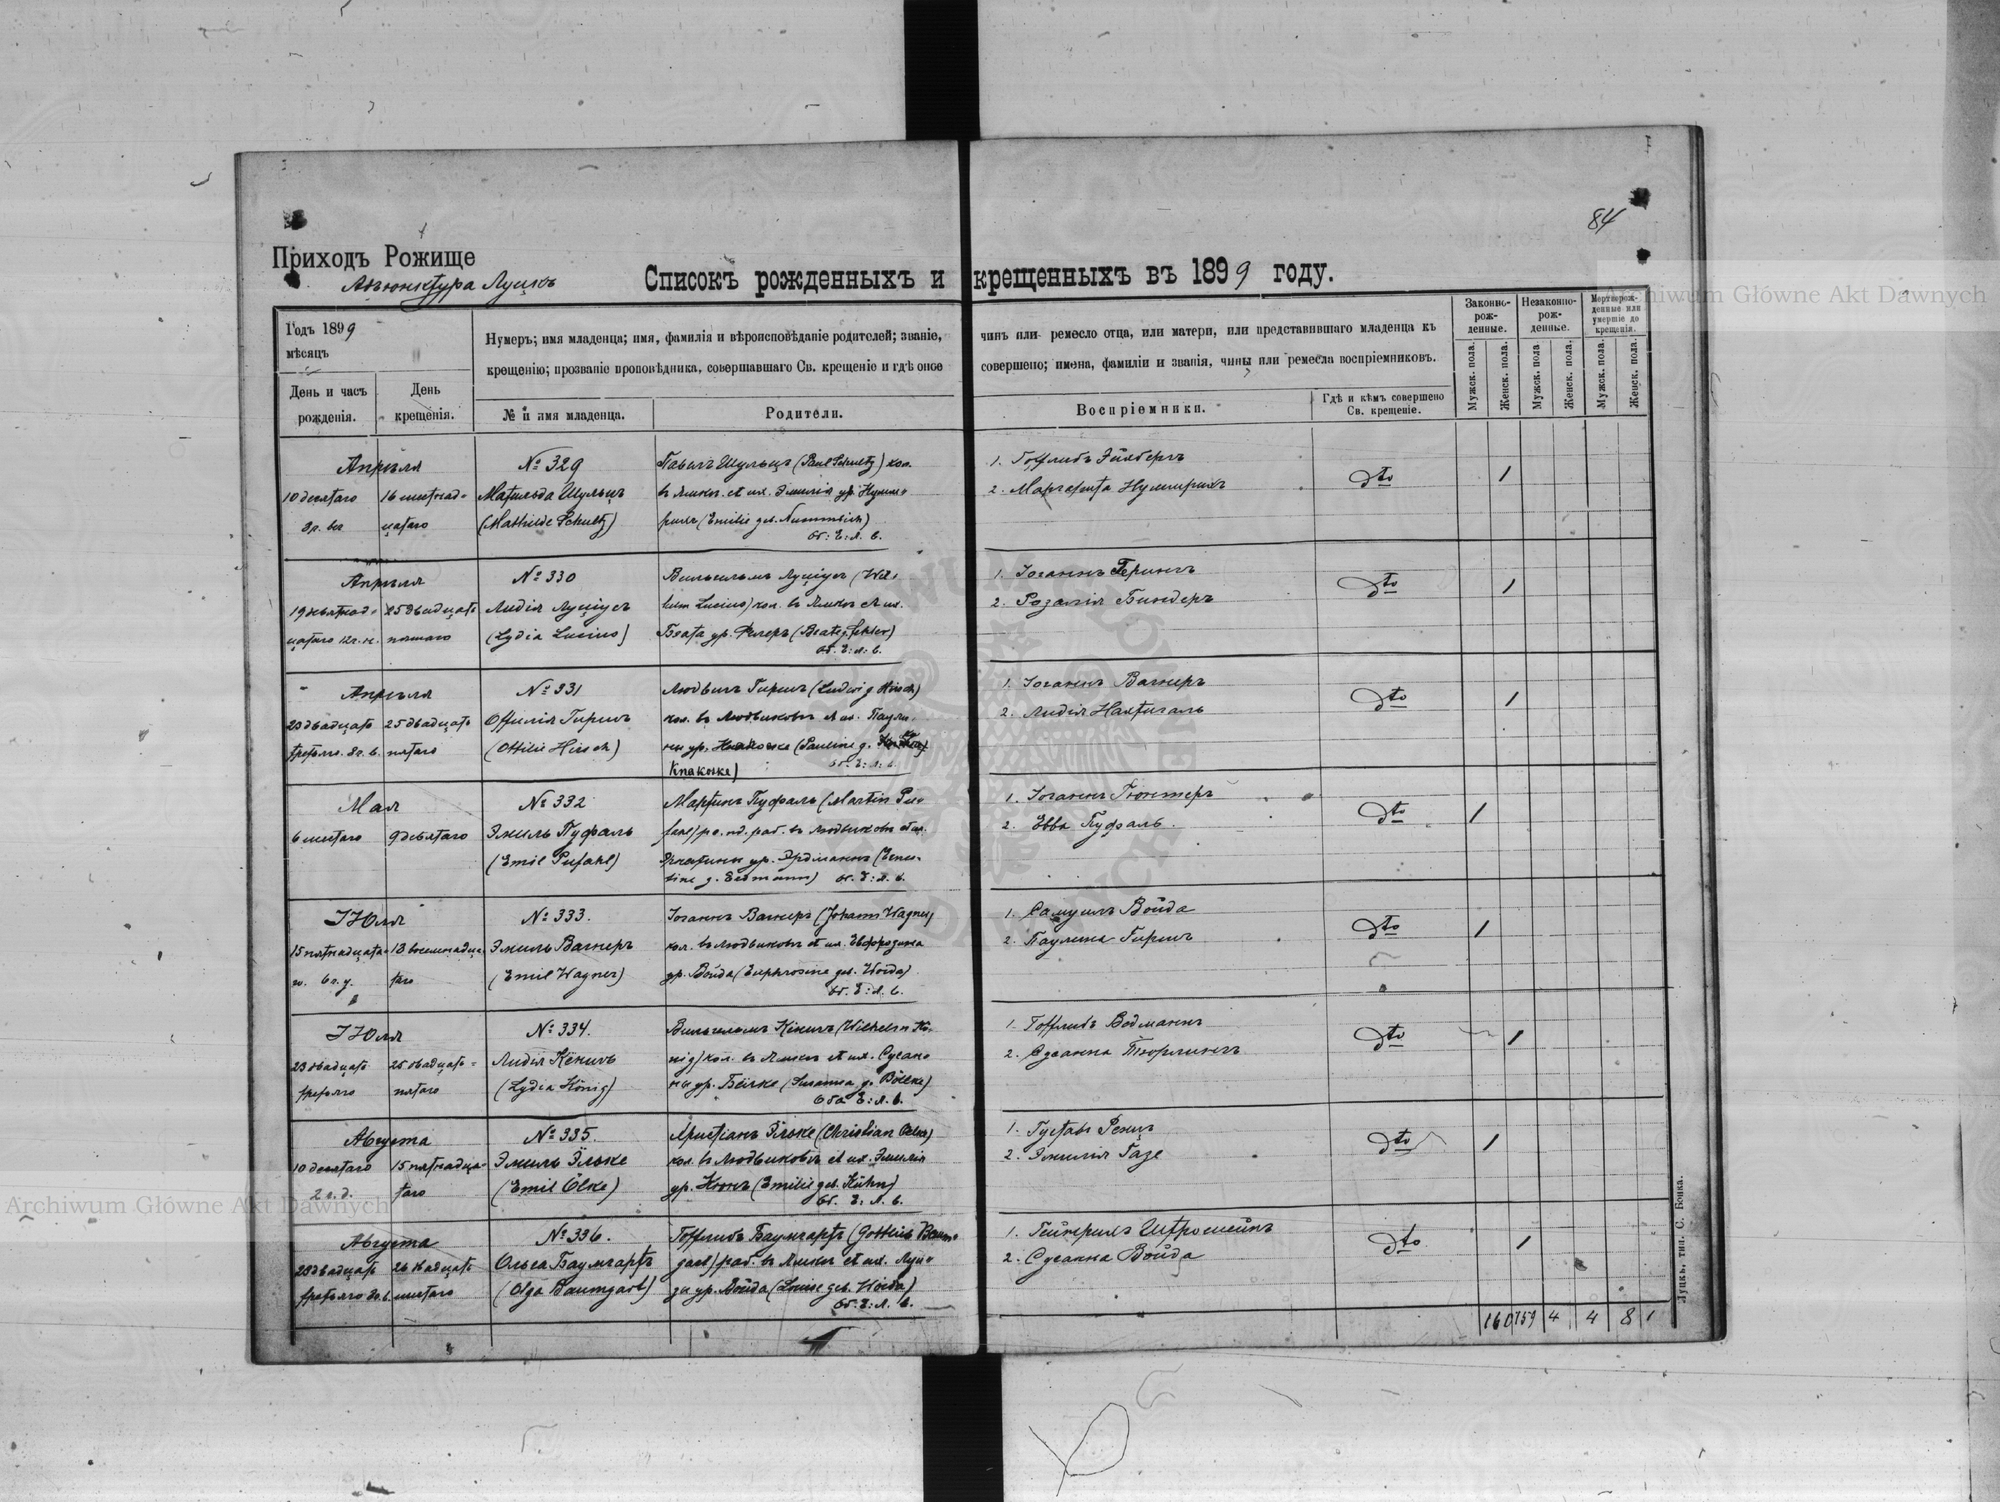 84
Приходъ Рожище
Адъюнктура Луцкъ
Списокъ рожденныхъ и крещенныхъ въ 1899 году.
Годъ 1899
мѣсяцъ
Нумеръ; имя младенца; имя, фамилія и вѣроисповѣданіе родителей; званіе, чинъ или ремесло отца, или матери, или представившаго младенца къ
крещенію; прозваніе проповѣдника, совершавшаго Св. крещеніе и гдѣ оное совершено; имена, фамиліи и званія, чины или ремесла воспріемниковъ.
День и часъ рожденія.
День крещенія.
№ и имя младенца.
Родители.
Воспріемники.
Гдѣ и кѣмъ совершено Св. крещеніе.
Законно-рож-денные.
Незаконно-рож-денные.
Мертворож-денные или умершіе до крещенія.
Мужск. пола.
Женск. пола.
Мужск. пола
Женск. пола.
Мужск. пола.
Женск. пола.
Апрѣля
10 десятаго
16 шестнад-
цатаго
№ 329
Матильда Шульцъ
(Mathilde Schultz)
Павелъ Шульцъ (Paul Schultz) кол.
Эмилія ур. Нумм-
рихъ (Emilie geb. Nummrich)
об: Е: Л. в.
1. Готлибъ Эйхбергъ
2. Маргарита Нуммрихъ
dto
1
Апрѣля
19 девятнад-
цатаго 12 г. н.
25 двадцать
пятаго
№ 330
Лидія Луціусъ
(Lydia Lucius)
Вильгельмъ Луціусъ (Wil-
helm Lucius) кол.
Беата ур. Фелеръ (Beate g. Fehler)
об. Е: Л: в.
1. Іоганнъ Герингъ
2. Розалія Биндеръ
dto
1
Апрѣля
23 двадцать
третьяго. 8 г. в.
25 двадцать
пятаго
№ 331
Оттилія Гиршъ
(Ottilie Hirsch)
Людвигъ Гиршъ (Ludwig Hirsch)
кол. въ Людвиковкѣ Паули-
ны ур. (Pauline g.
Knakoske)
об. Е: Л: в.
1. Іоганнъ Вагнеръ
2. Лидія Нахтигаль
dto
1
Мая
6 шестаго
9 девятаго
№ 332
Эмиль Пуфаль
(Emil Pufahl)
Мартинъ Пуфаль (Martin Pu-
fahl) раб. въ Людвиковкѣ
Эрнестины ур. Эрдманнъ (Ernes-
tine g. Erdmann) об. Е: Л. в.
1. Іоганнъ Гюнтеръ
2. Евва Пуфаль.
dto
1
ІЮля
15 пятнадцата-
го. 6 г. у.
18 восемнадца-
таго
№ 333.
Эмиль Вагнеръ
(Emil Wagner)
Іоганнъ Вагнеръ (Johann Wagner)
кол. въ Людвиковкѣ Евфрозина
ур. Войда (Euphrosine geb. Woida)
об. Е: Л. в.
1. Самуилъ Войда
2. Паулина Гиршъ
dto
1
ІЮля
23 двадцать
третьяго
25 двадцать-
пятаго
№ 334.
Лидія Кёнигъ
(Lydia König)
Вильгельмъ Кёнигъ (Wilhelm Kö-
nig) кол. Сусан-
ны ур. Бёлке (Susanna g. Bölke)
оба Е: Л. в.
1. Готлибъ Водманнъ
2. Сусанна Тюрлингъ
dto
1
Августа
10 десятаго
2 г. д.
15 пятнадца-
таго
№ 335.
Эмиль Эльке
(Emil Ölke)
Христіанъ Эльке (Christian Oelke)
кол. въ Людвиковкѣ Эмилія
ур. Кюнъ (Emilie geb. Kühn)
об. Е: Л. в.
1. Густавъ Ренцъ
2. Эмилія Газе
dto
1
Августа
23 двадцать
третьяго
26 двадцать
шестаго
№ 336.
Ольга Баумгартъ
(Olga Baumgart)
Готтлибъ Баумгартъ (Gottlieb Baum-
gart) раб. Луи-
зы ур. Войда (Louise geb. Woida)
об. Е: Л. в.
1. Гейнрихъ Штрошейнъ
2. Сусанна Войда
dto
1
160 159 4 4 8 1
Луцкъ, тип. С. Бонка.
Archiwum Główne Akt Dawnych
Archiwum Główne Akt Dawnych